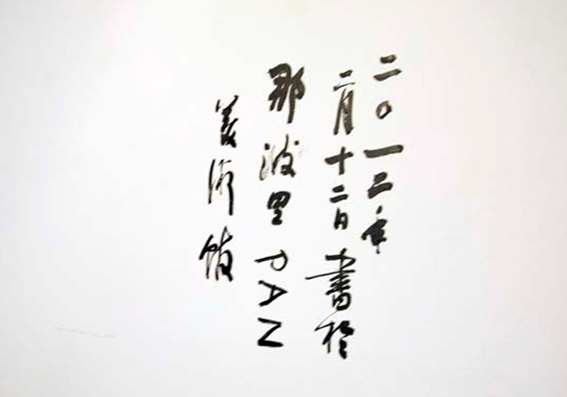 二〇一二年
二月十二日書於
那波里PAN
美術館